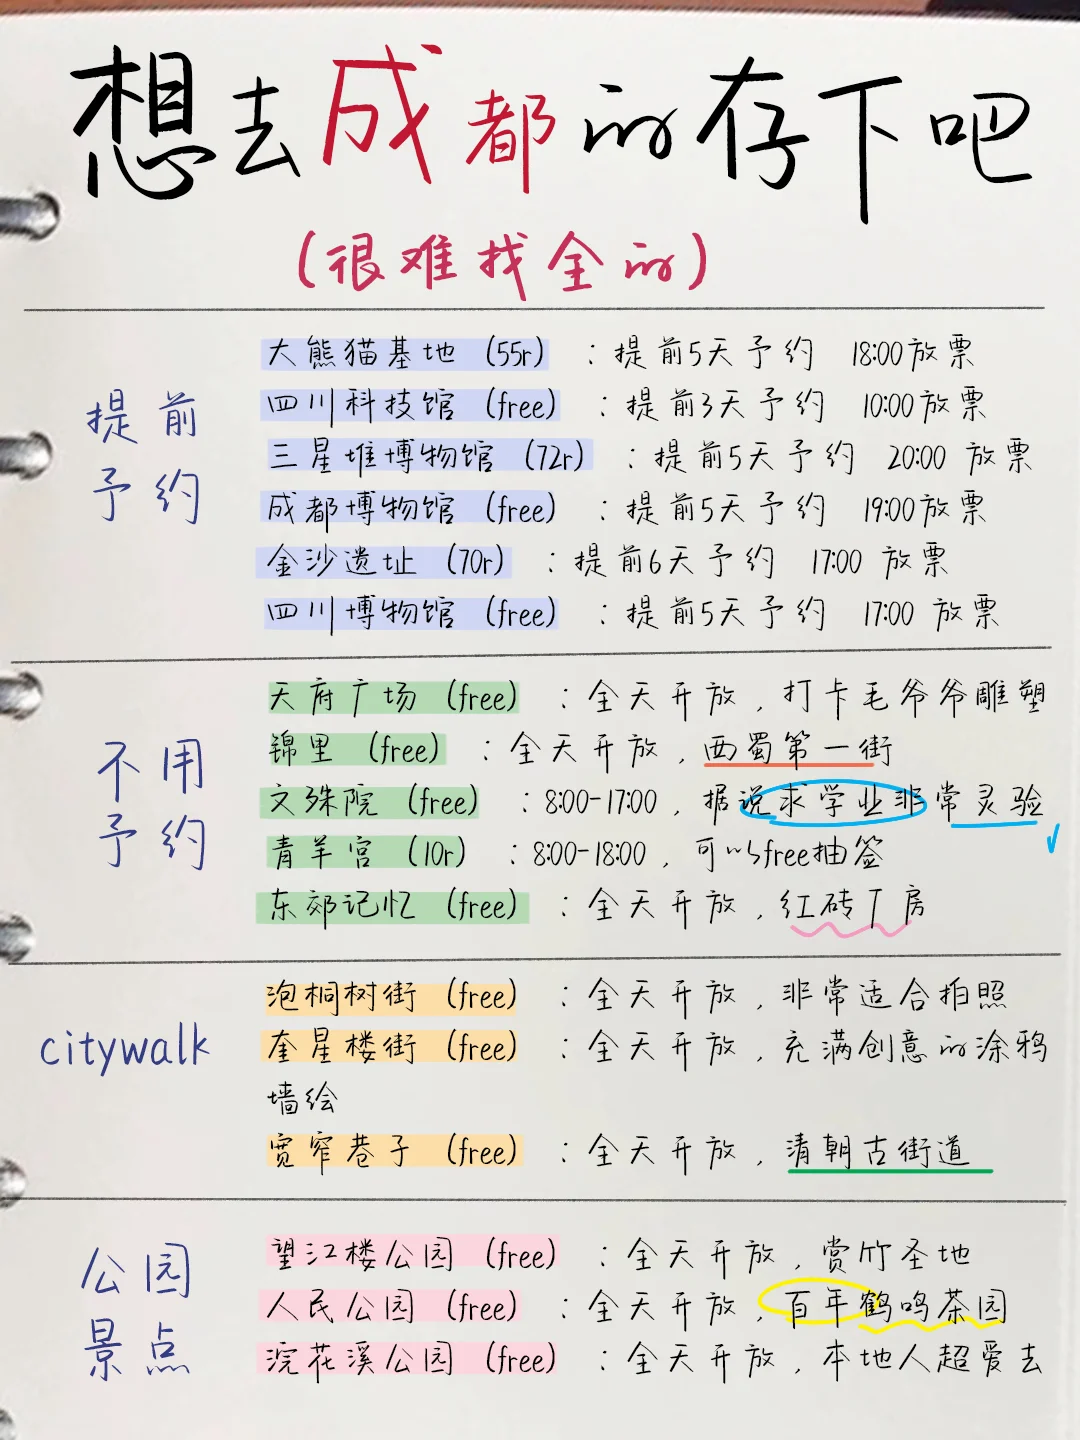 想去成都的存下吧
(很难找全的)
提前
予约
大熊猫基地 (55r) : 提前5天予约 18:00放票
四川科技馆 (free) : 提前3天予约 10:00放票
三星堆博物馆 (72r) : 提前5天予约 20:00 放票
成都博物馆 (free) : 提前5天予约 19:00放票
金沙遗址 (70r) : 提前6天予约 17:00 放票
四川博物馆 (free) : 提前5天予约 17:00 放票
不用
予约
天府广场 (free) : 全天开放, 打卡毛爷爷雕塑
锦里 (free) : 全天开放, 西蜀第一街
文殊院 (free) : 8:00-17:00, 据说求学业非常灵验
青羊宫 (10r) : 8:00-18:00, 可以free抽签
东郊记忆 (free) : 全天开放, 红砖厂房
citywalk
泡桐树街 (free) : 全天开放, 非常适合拍照
奎星楼街 (free) : 全天开放, 充满创意的涂鸦
墙绘
宽窄巷子 (free) : 全天开放, 清朝古街道
公园
景点
望江楼公园 (free) : 全天开放, 赏竹圣地
人民公园 (free) : 全天开放, 百年鹤鸣茶园
浣花溪公园 (free) : 全天开放, 本地人超爱去